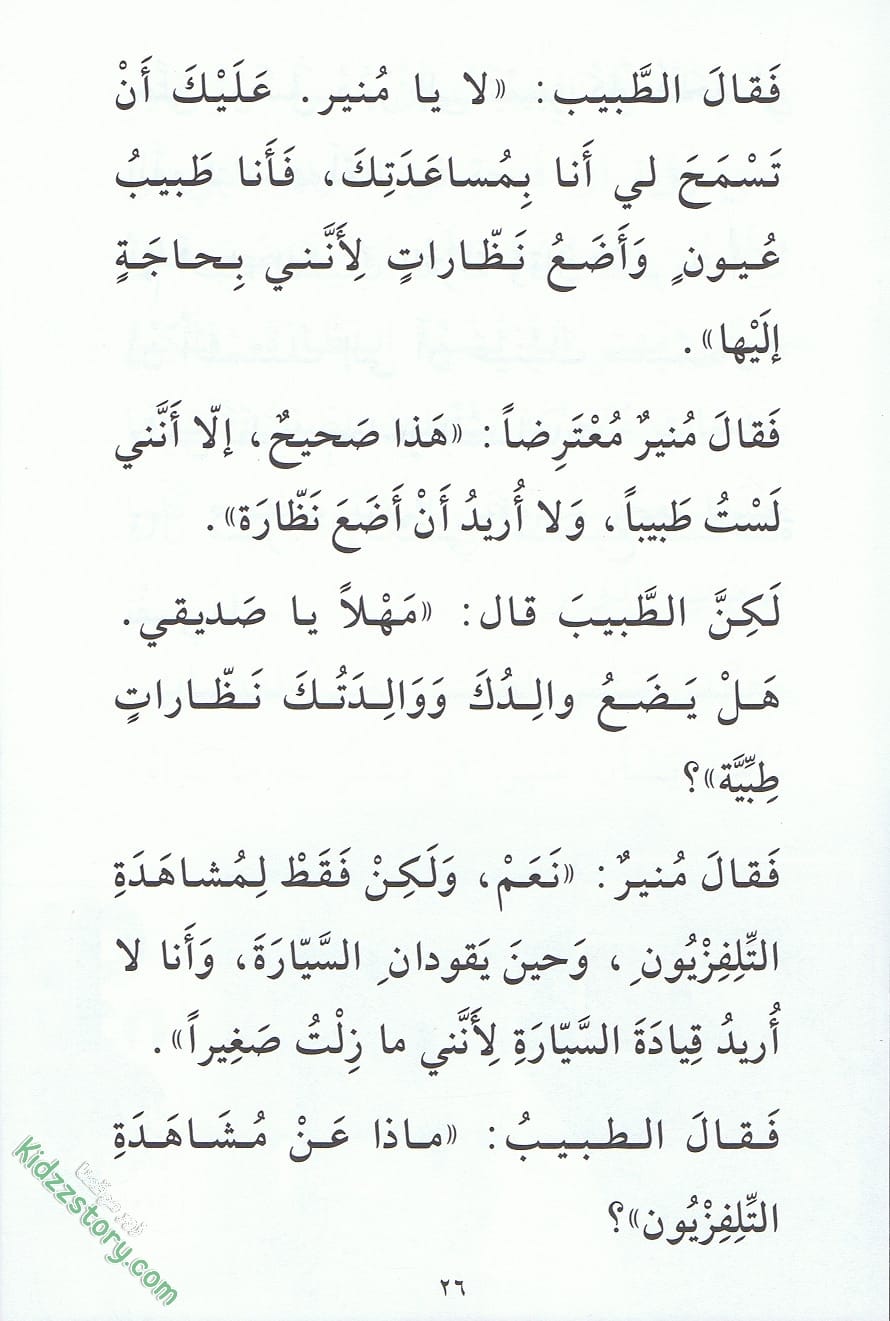 فَقالَ الطَّبيب: «لا يا مُنير. عَلَيْكَ أَنْ
تَسْمَحَ لي أَنا بِمُساعَدَتِكَ، فَأَنا طَبيبُ
عُيونٍ وَأَضَعُ نَظّاراتٍ لِأَنَّني بِحاجَةٍ
إلَيْها».
فَقالَ مُنيرٌ مُعْتَرِضاً: «هَذا صَحيحٌ، إلّا أَنَّني
لَسْتُ طَبيباً، وَلا أُريدُ أَنْ أَضَعَ نَظّارَة».
لَكِنَّ الطَّبيبَ قال: «مَهْلاً يا صَديقي.
هَلْ يَضَعُ والِدُكَ وَوَالِدَتُكَ نَظّاراتٍ
طِبِّيَّة»؟
فَقالَ مُنيرٌ: «نَعَمْ، وَلَكِنْ فَقَطْ لِمُشاهَدَةِ
التِّلِفِزْيُونِ، وَحينَ يَقودانِ السَّيّارَةَ، وَأَنا لا
أُريدُ قِيادَةَ السَّيّارَةِ لِأَنَّني ما زِلْتُ صَغِيراً».
فَقالَ الطبيبُ: «ماذا عَنْ مُشَاهَدَةِ
التِّلِفِزْيُون»؟
Kidzzstory.com
٢٦